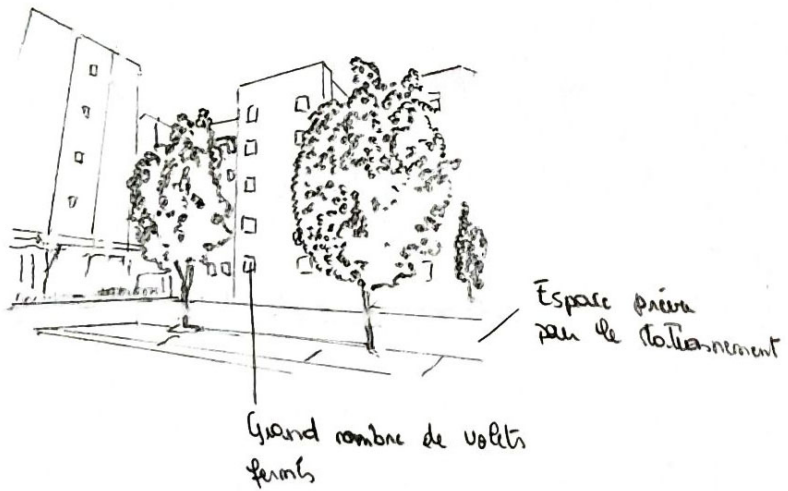 Espace prévu
pour le stationnement
Grand nombre de volets
fermés